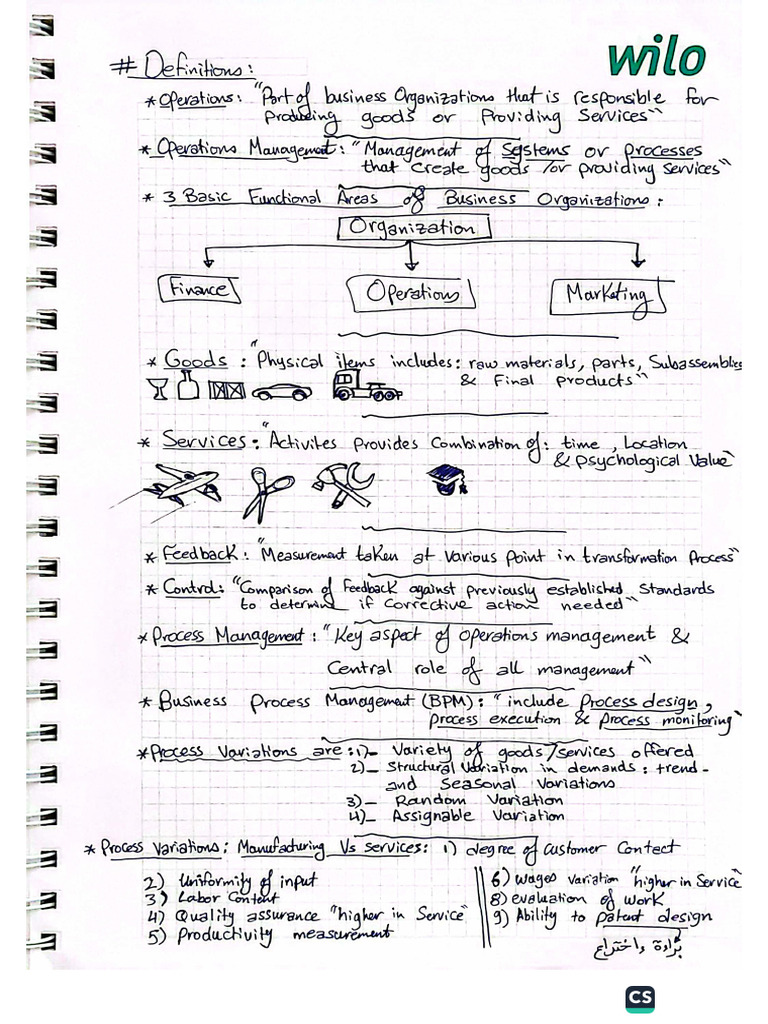 wilo
# Definitions:
* Operations: "Part of business Organizations that is responsible for
Producing goods or Providing Services"
* Operations Management: "Management of Systems or processes
that create goods /or providing services"
* 3 Basic Functional Areas of Business Organizations:
Organization
Finance Operations Marketing
* Goods: "Physical items includes: raw materials, parts, Subassemblies
& Final products"
* Services: "Activites Provides Combination of: time, Location
& Psychological Value"
* Feedback: "Measurement taken at Various Point in transformation Process"
* Control: "Comparison of Feedback against previously established Standards
to determine if Corrective action needed"
* Process Management: "Key aspect of operations management &
Central role of all management"
* Business Process Management (BPM): "include Process design,
process execution & process monitoring"
* Process Variations are: 1)- Variety of goods/services offered
2)- Structural Variation in demands: trend-
and Seasonal Variations
3)- Random Variation
4)- Assignable Variation
* Process Variations: Manufacturing Vs Services: 1) degree of Customer Contect
2) Uniformity of input
3) Labor Content
4) Quality assurance "higher in Service"
5) Productivity measurement
6) wages variation "higher in Service"
8) evaluation of work
9) Ability to patent design
براءة واختراع
CS